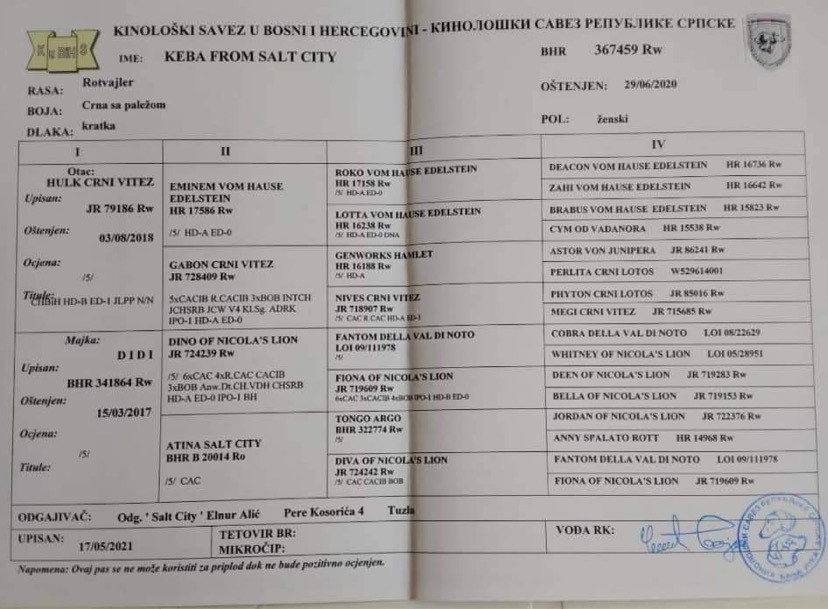 KINOLOŠKI SAVEZ U BOSNI I HERCEGOVINI - КИНОЛОШКИ САВЕЗ РЕПУБЛИКЕ СРПСКЕ
K u BiH S
IME: KEBA FROM SALT CITY
BHR 367459 Rw
RASA: Rotvajler
OŠTENJEN: 29/06/2020
BOJA: Crna sa paležom
DLAKA: kratka
POL: ženski
I II III IV
Otac:
HULK CRNI VITEZ
Upisan:
JR 79186 Rw
Oštenjen:
03/08/2018
Ocjena:
/5/
Titule:
CHBIH HD-B ED-1 JLPP N/N
Majka:
D I D I
Upisan:
BHR 341864 Rw
Oštenjen:
15/03/2017
Ocjena:
/5/
Titule:
EMINEM VOM HAUSE
EDELSTEIN
HR 17586 Rw
/5/ HD-A ED-0
GABON CRNI VITEZ
JR 728409 Rw
5xCACIB R.CACIB 3xBOB INTCH
JCHSRB JCW V4 KLSg. ADRK
IPO-1 HD-A ED-0
DINO OF NICOLA'S LION
JR 724239 Rw
/5/ 6xCAC 4xR.CAC CACIB
3xBOB Anw.Dt.CH.VDH CHSRB
HD-A ED-0 IPO-1 BH
ATINA SALT CITY
BHR B 20014 Ro
/5/ CAC
ROKO VOM HAUSE EDELSTEIN
HR 17158 Rw
/5/ HD-A ED-0
LOTTA VOM HAUSE EDELSTEIN
HR 16238 Rw
/5/ HD-A ED-0 DNA
GENWORKS HAMLET
HR 16188 Rw
/5/ HD-A
NIVES CRNI VITEZ
JR 718907 Rw
/5/ CAC R CAC HD-A ED-1
FANTOM DELLA VAL DI NOTO
LOI 09/111978
/5/
FIONA OF NICOLA'S LION
JR 719609 Rw
6xCAC 3xCACIB 4xBOB IPO-1 HD-B ED-0
TONGO ARGO
BHR 322774 Rw
/5/
DIVA OF NICOLA'S LION
JR 724242 Rw
/5/ CAC CACIB BOB
DEACON VOM HAUSE EDELSTEIN HR 16736 Rw
ZAHI VOM HAUSE EDELSTEIN HR 16642 Rw
BRABUS VOM HAUSE EDELSTEIN HR 15823 Rw
CYM OD VADANORA HR 15538 Rw
ASTOR VON JUNIPERA JR 86241 Rw
PERLITA CRNI LOTOS W529614001
PHYTON CRNI LOTOS JR 85016 Rw
MEGI CRNI VITEZ JR 715685 Rw
COBRA DELLA VAL DI NOTO LOI 08/22629
WHITNEY OF NICOLA'S LION LOI 05/28951
DEEN OF NICOLA'S LION JR 719283 Rw
BELLA OF NICOLA'S LION JR 719153 Rw
JORDAN OF NICOLA'S LION JR 722376 Rw
ANNY SPALATO ROTT HR 14968 Rw
FANTOM DELLA VAL DI NOTO LOI 09/111978
FIONA OF NICOLA'S LION JR 719609 Rw
ODGAJIVAČ: Odg. ' Salt City ' Elnur Alić Pere Kosorića 4 Tuzla
UPISAN: 17/05/2021
TETOVIR BR:
MIKROČIP:
VOĐA RK:
Napomena: Ovaj pas se ne može koristiti za priplod dok ne bude pozitivno ocjenjen.